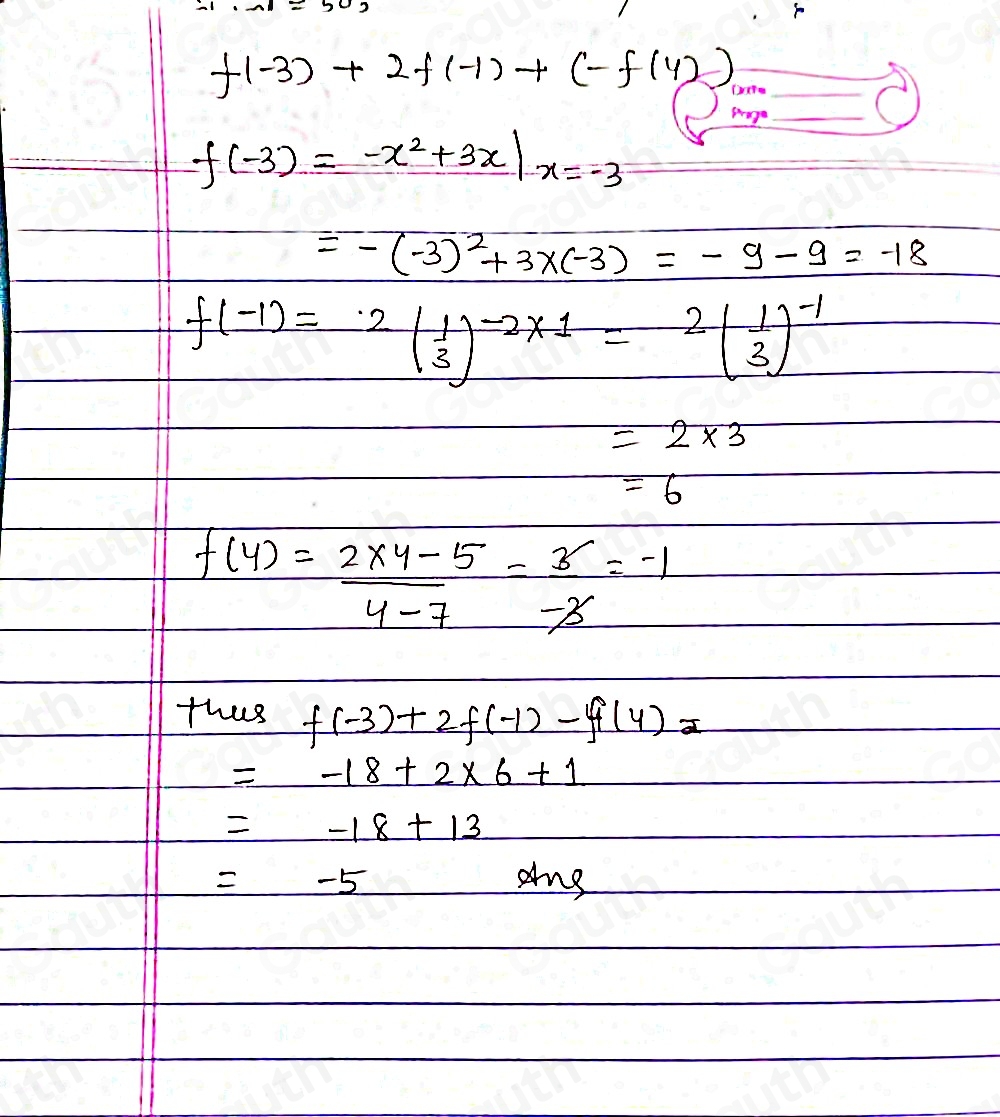 f(-3) + 2f(-1) + (-f(4))
Date
Page
f(-3) = -x² + 3x | x=-3
= -(-3)² + 3×(-3) = -9-9 = -18
f(-1) = 2(1/3)^-2×1 = 2(1/3)^-1
= 2×3
= 6
f(4) = (2×4-5)/(4-7) = 3/-3 = -1
thus f(-3)+2f(-1)-f(4) =
= -18 + 2×6 + 1
= -18 + 13
= -5 Ans
Gauth